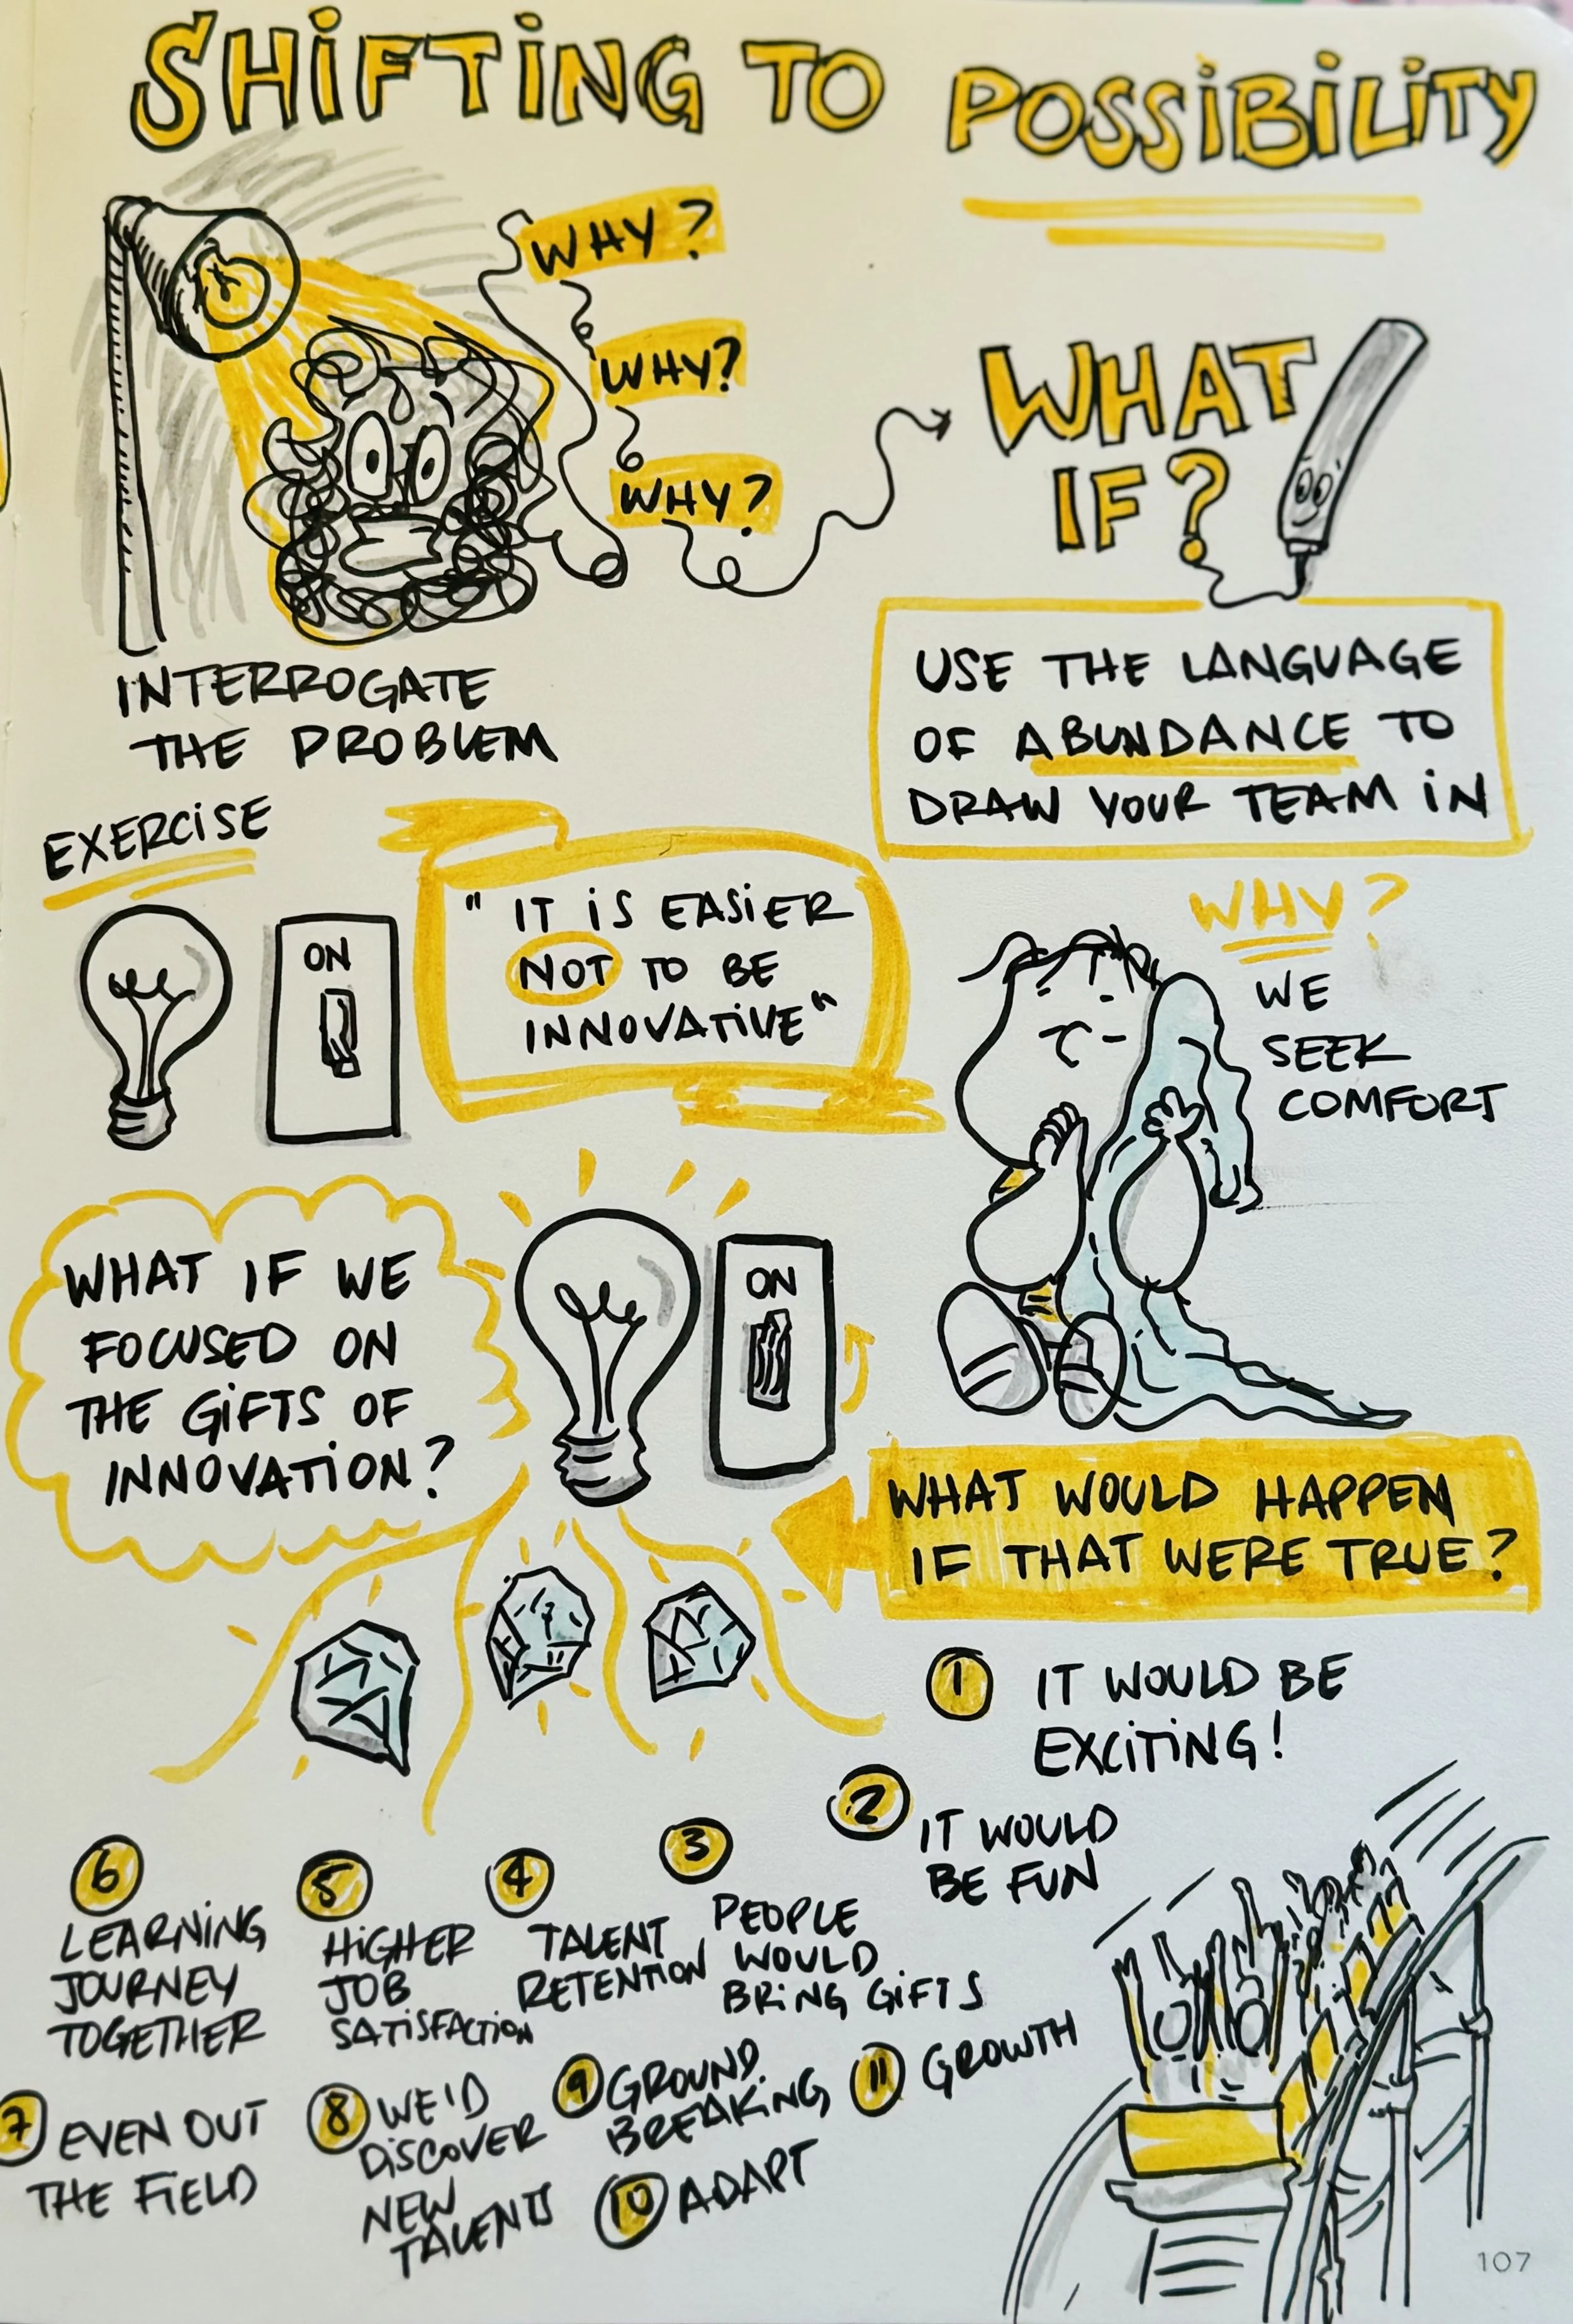 SHIFTING TO POSSIBILITY
WHY?
WHY?
WHY?
WHAT
IF?
INTERROGATE
THE PROBLEM
USE THE LANGUAGE
OF ABUNDANCE TO
DRAW YOUR TEAM IN
EXERCISE
ON
" IT IS EASIER
NOT TO BE
INNOVATIVE"
WHY?
WE
SEEK
COMFORT
WHAT IF WE
FOCUSED ON
THE GIFTS OF
INNOVATION?
ON
WHAT WOULD HAPPEN
IF THAT WERE TRUE?
1 IT WOULD BE
EXCITING!
2 IT WOULD
BE FUN
3
PEOPLE
WOULD
BRING GIFTS
4
TALENT
RETENTION
5
HIGHER
JOB
SATISFACTION
6
LEARNING
JOURNEY
TOGETHER
7 EVEN OUT
THE FIELD
8 WE'D
DISCOVER
NEW
TALENTS
9 GROUND
BREAKING
10 ADAPT
11 GROWTH
107